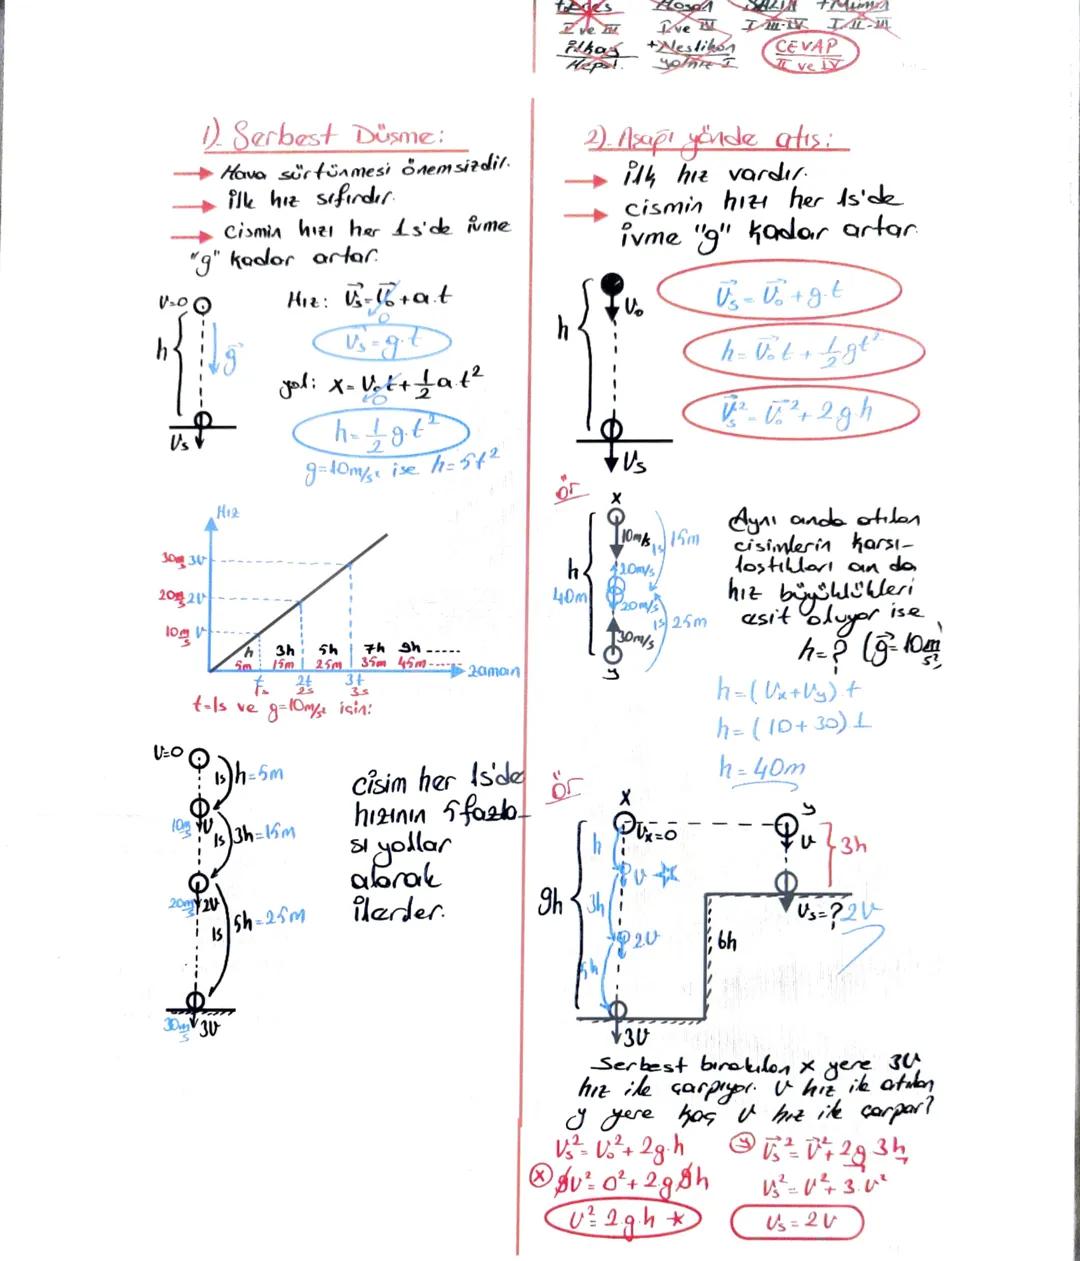 I ve III
I ve IV
I-III-IV
I-II-III
İlkay
+Neslihan
CEVAP
Hepsi.
yalnız I
II ve IV
1). Serbest Düşme:
→ Hava sürtünmesi önemsizdir.
→ ilk hız sıfırdır.
→ cismin hızı her 1s'de ivme
"g" kadar artar.
V=0
h
g
Vs
Hız: Vs=V₀+a.t
0
Vs=g.t
yol: x=V₀t+½a.t²
0
h=½g.t²
g=10m/s² ise h=5t²
Hız
30m/s 3V
20m/s 2V
10m/s V
h 3h 5h 7h 9h .....
5m 15m 25m 35m 45m.....
t 2t 3t zaman
2s 3s
t=1s ve g=10m/s² için:
V=0
1s h=5m
10m/s V
1s 3h=15m
20m/s 2V
1s 5h=25m
30m/s 3V
cisim her 1s'de
hızının 5 fazla-
sı yollar
alarak
ilerler.
2). Aşağı yönde atış:
→ ilk hız vardır.
→ cismin hızı her 1s'de
ivme "g" kadar artar.
h
V₀
Vs
Vs=V₀+g.t
h=V₀t+½gt²
Vs²=V₀²+2gh
ör
x
10m/s 1s 15m
h 20m/s
40m 20m/s
1s 25m
30m/s
y
Aynı anda atılan
cisimlerin karşı-
laştıkları an da
hız büyüklükleri
eşit oluyor ise
h=? (g=10m/s²)
h=(Vx+Vy).t
h=(10+30)1
h=40m
ör
x
Vx=0
y
V
3h
h
V
9h
3h
2V
5h
6h
Vs=? 2V
3V
Serbest bırakılan x yere 3V
hız ile çarpıyor. V hız ile atılan
y yere kaç V hız ile çarpar?
Vs²=V₀²+2g.h
x 9V²=0²+2g9h
V²=2g.h *
y Vs²=V²+2g3h
Vs²=V²+3.V²
Vs=2V